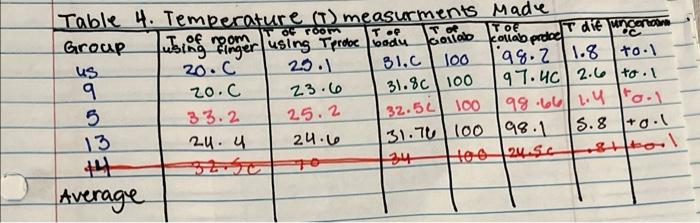 Table 4. Temperature (T) measurments Made
Group | T of room using finger | T of room using Tprobe | T of body | T of collab | T of collab probe | T dif | uncertain °C
us 20.C 25.1 31.C 100 98.2 1.8 +0.1
9 20.C 23.6 31.8C 100 97.4C 2.6 +0.1
5 33.2 25.2 32.5C 100 98.66 1.4 +0.1
13 24.4 24.6 31.76 100 98.1 5.8 +0.1
14 32.5C 70 34 100 24.5C .81 +0.1
Average